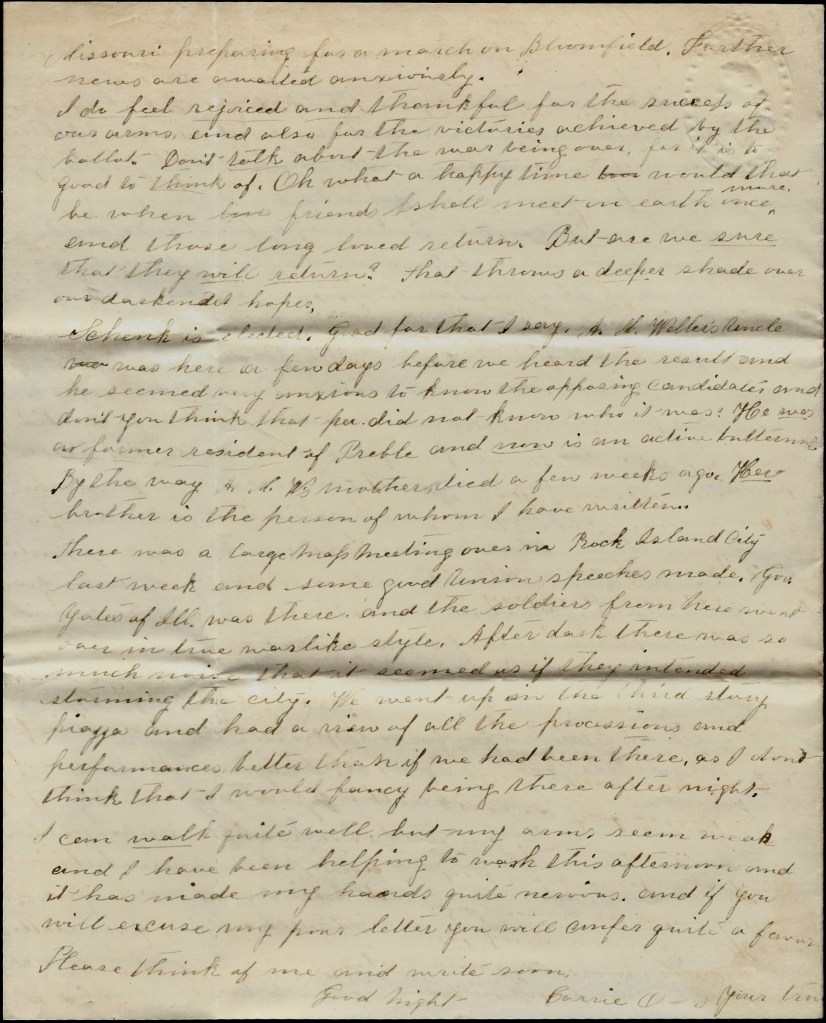 Missouri preparing for a march on Bloomfield. Further
news are awaited anxiously.
I do feel rejoiced and thankful for the success of
our arms, and also for the victories achieved by the
ballot. Don't talk about the war being over, for it is to
good to think of. Oh what a happy time would that
be when friends shall meet on earth once more,
and those long loved return. But are we sure
that they will return? that throws a deeper shade over
our darkendst hopes,
Schenk is elected. Good for that I say. A. M. Uncle
was here a few days before we heard the result and
he seemed very anxious to know the opposing candidate, and
don't you think that per. did not know who it was! He was
a former resident of Preble and now is an active butternut
By the way A. M. W's mother died a few weeks ago. Her
brother is the person of whom I have written.
There was a large Mass Meeting over in Rock Island City
last week and some good Union speeches made. Gov
Yates of Ill. was there. and the soldiers from here went
over in true warlike style. After dark there was so
much noise that it seemed as if they intended
storming the city. We went up on the third story
piazza and had a view of all the processions and
performances, better than if we had been there, as I dont
think that I would fancy being there after night.
I can walk quite well, but my arms seem weak
and I have been helping to wash this afternoon and
it has made my hands quite nervous. and if you
will excuse my poor letter you will confer quite a favor
Please think of me and write soon.
Good Night Carrie O Your tru